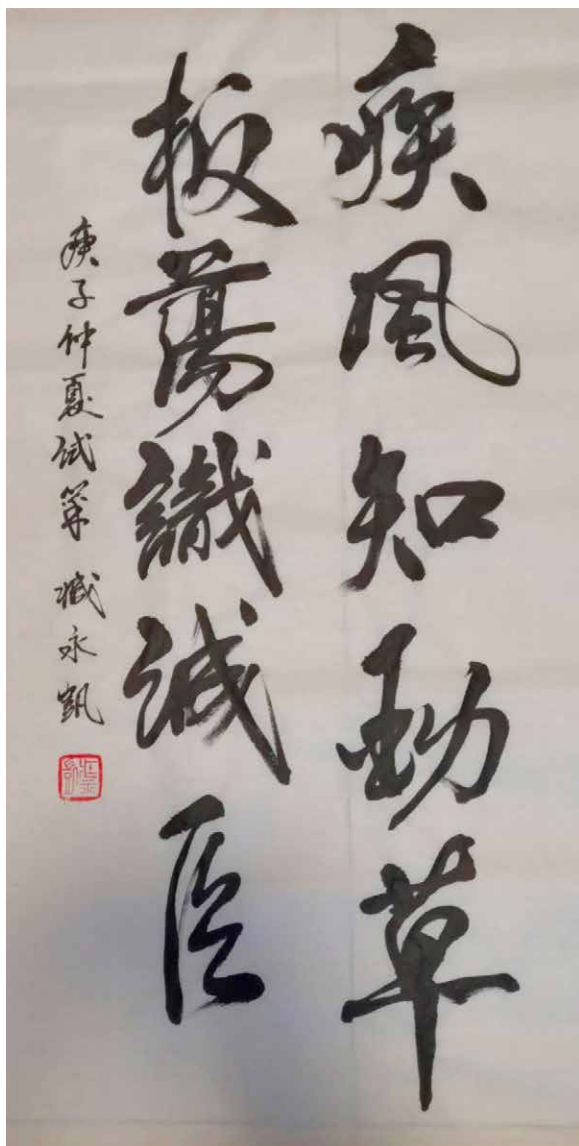 疾風知勁草
板蕩識誠臣
庚子仲夏试笔 臧永凱